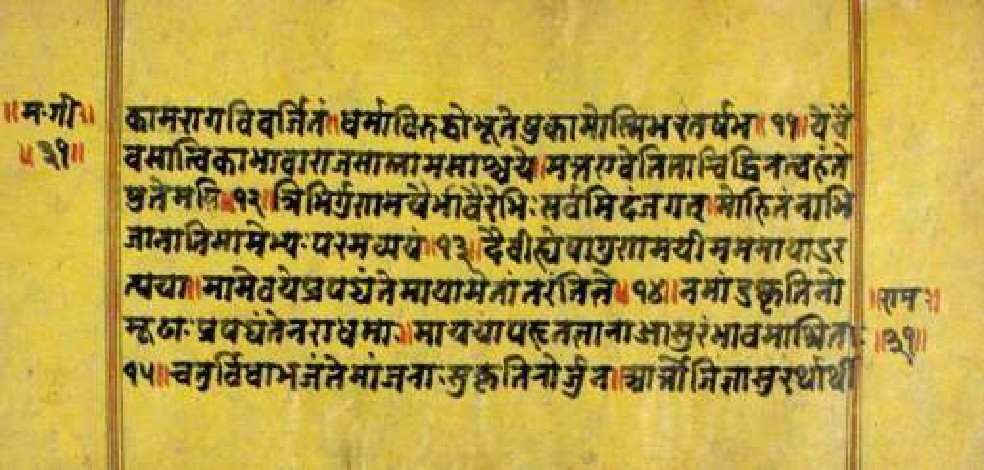 ॥म॰गी॰॥
॥३१॥
कामरागविवर्जितं॥धर्माविरुद्धोभूतेषुकामोस्मिभरतर्षभ॥११॥येचै
वसात्त्विकाभावाराजसास्तामसाश्चये॥मत्तएवेतितान्विद्धिनत्वहंते
षुतेमयि॥१२॥त्रिभिर्गुणमयैर्भावैरेभिःसर्वमिदंजगत्॥मोहितंनाभि
जानातिमामेभ्यःपरमव्ययं॥१३॥दैवीह्येषागुणमयीमममायाऽर
त्यया॥मामेवयेप्रपद्यंतेमायामेतांतरंतिते॥१४॥नमांदुष्कृतिनो
मूढाःप्रपद्यंतेनराधमाः॥माययापहृतज्ञानाआसुरंभावमाश्रिताः
१५॥चतुर्विधाभजंतेमांजनाःसुकृतिनोर्जुन॥आर्तोजिज्ञासुरर्थार्थी
॥रामः॥
॥३१॥